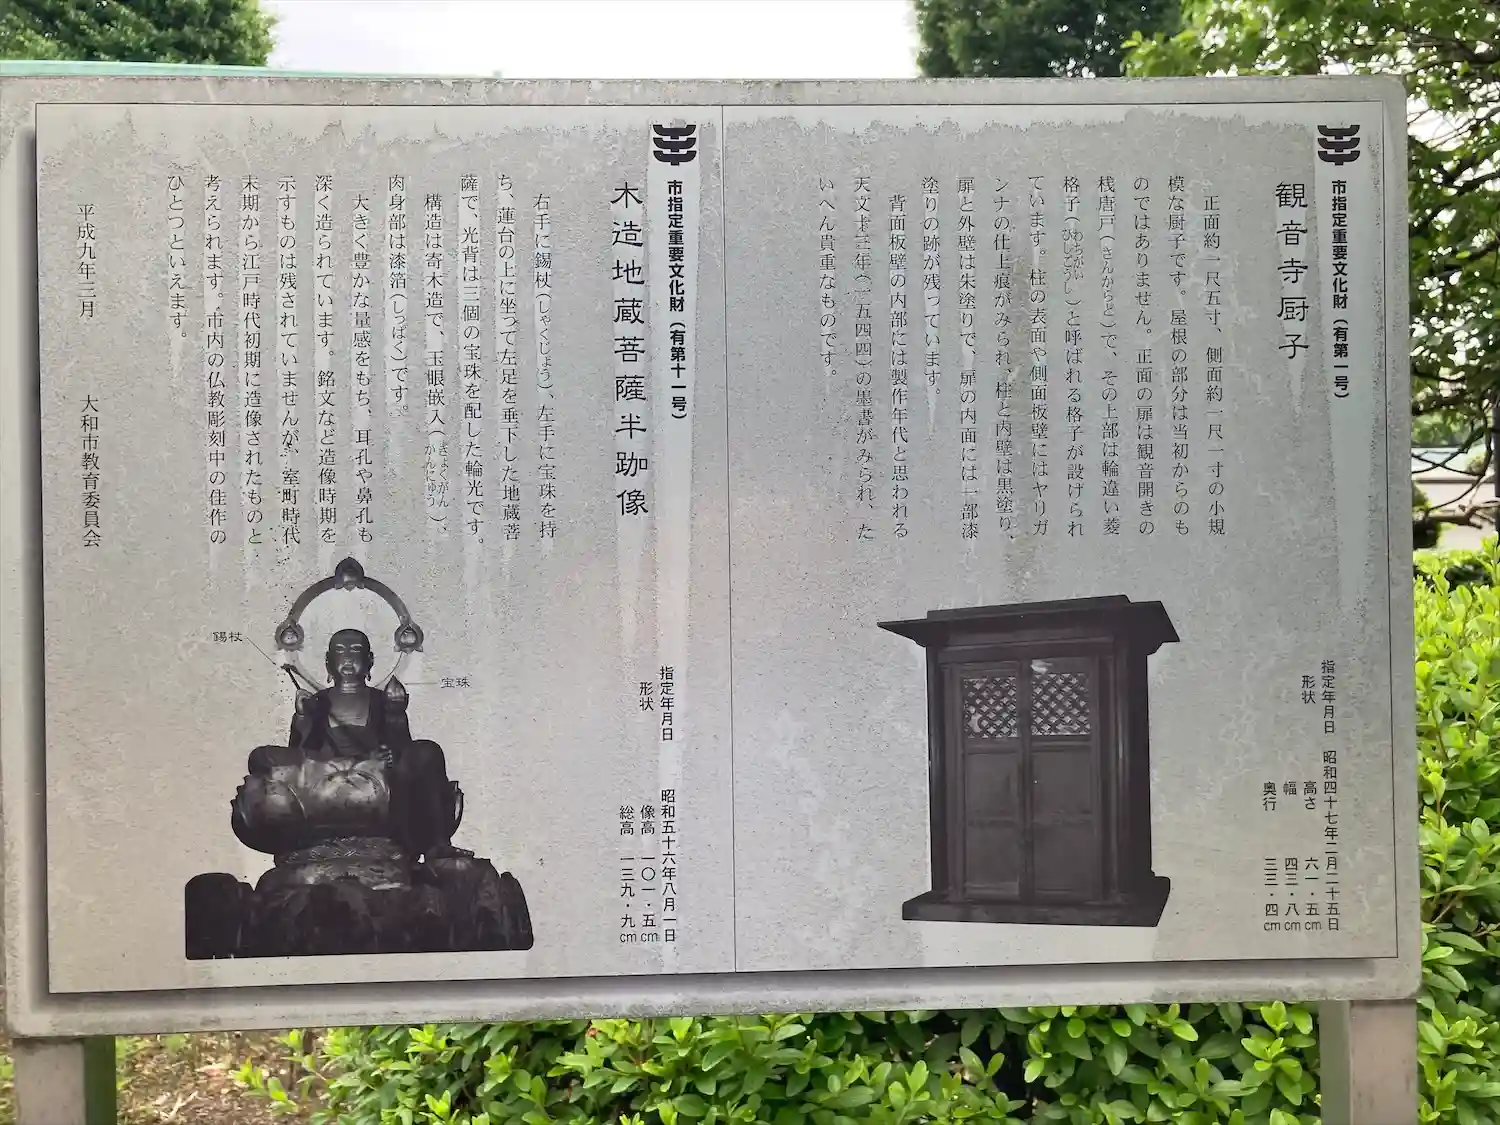 市指定重要文化財（有第一号）
観音寺厨子
正面約一尺五寸、側面約一尺一寸の小規
模な厨子です。屋根の部分は当初からのも
のではありません。正面の扉は観音開きの
桟唐戸（さんからど）で、その上部は輪違い菱
格子（わちがいひしごうし）と呼ばれる格子が設けられ
ています。柱の表面や側面板壁にはヤリガ
ンナの仕上痕がみられ、柱と内壁は黒塗り、
扉と外壁は朱塗りで、扉の内面には一部漆
塗りの跡が残っています。
背面板壁の内部には製作年代と思われる
天文十三年（一五四四）の墨書がみられ、た
いへん貴重なものです。
指定年月日 昭和四十七年二月二十五日
形状 高さ 六一・五cm
幅 四三・八cm
奥行 三三・四cm
市指定重要文化財（有第十一号）
木造地蔵菩薩半跏像
右手に錫杖（しゃくじょう）、左手に宝珠を持
ち、蓮台の上に坐って左足を垂下した地蔵菩
薩で、光背は三個の宝珠を配した輪光です。
構造は寄木造で、玉眼嵌入（ぎょくがんかんにゅう）、
肉身部は漆箔（しっぱく）です。
大きく豊かな量感をもち、耳孔や鼻孔も
深く造られています。銘文など造像時期を
示すものは残されていませんが、室町時代
末期から江戸時代初期に造像されたものと
考えられます。市内の仏教彫刻中の佳作の
ひとつといえます。
平成九年三月 大和市教育委員会
指定年月日 昭和五十六年八月一日
形状 像高 一〇一・五cm
総高 一三九・九cm
錫杖
宝珠